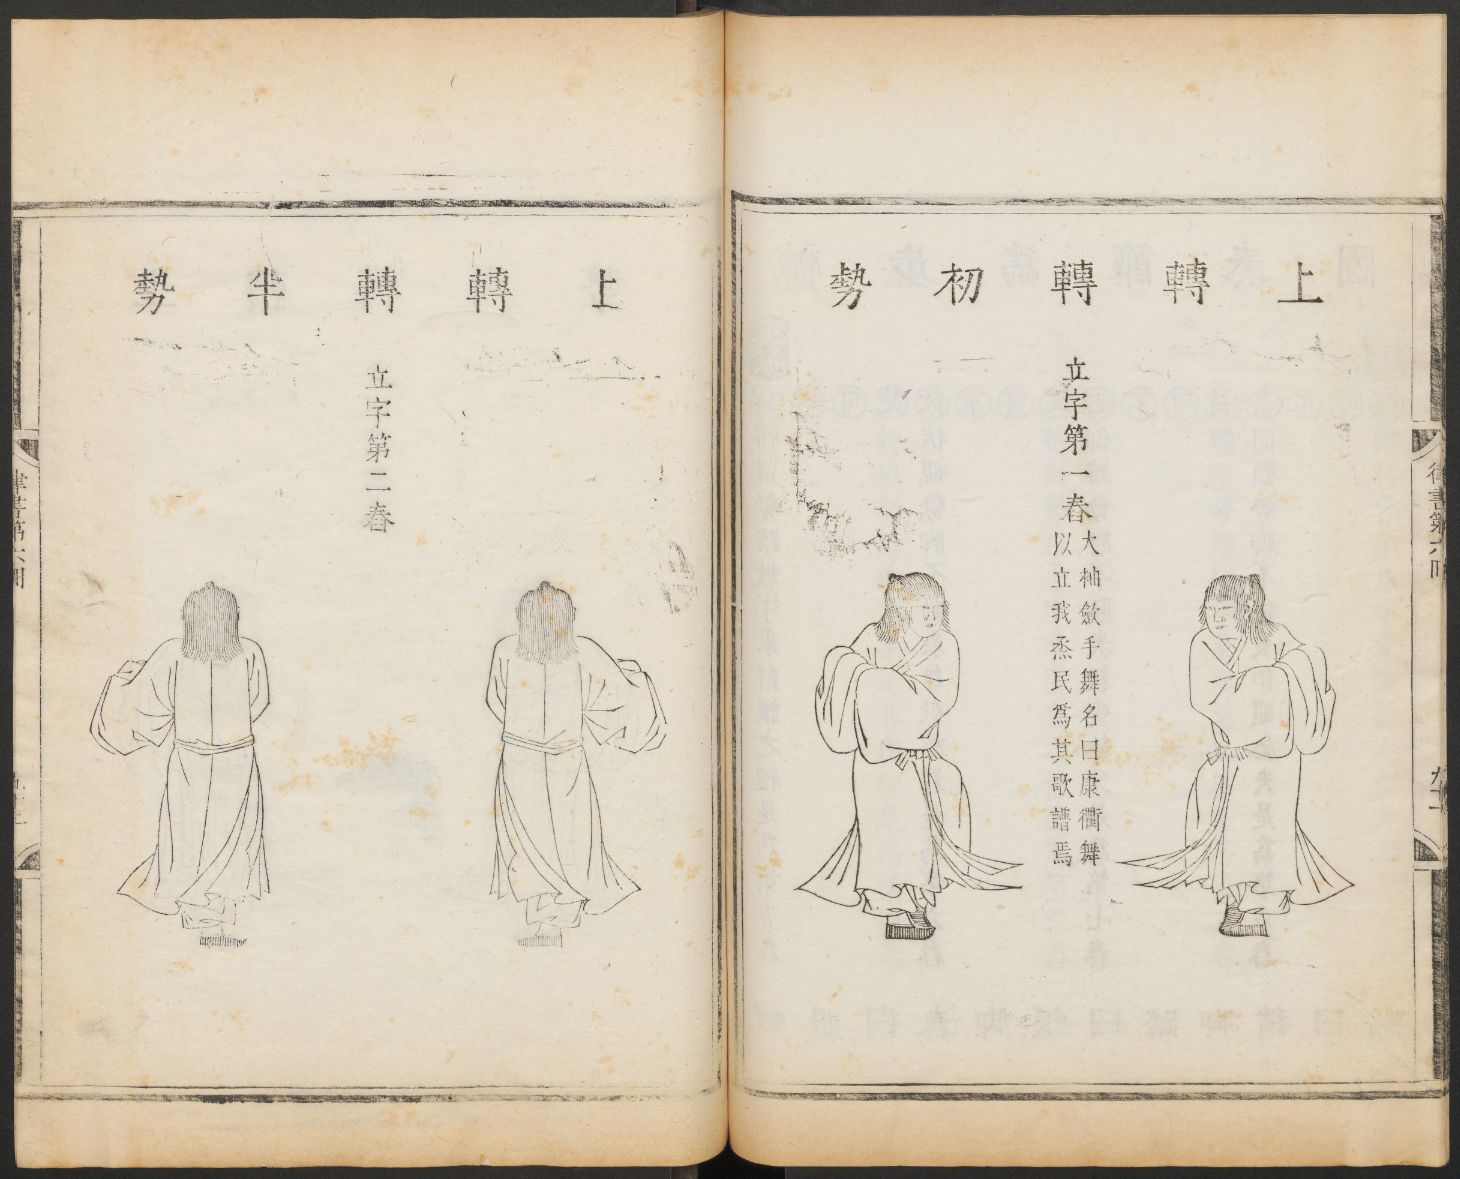 上轉轉初勢
立字第一舂
大袖斂手舞名曰康衢舞
以立我烝民爲其歌譜焉
上轉轉半勢
立字第二舂
律書第六冊